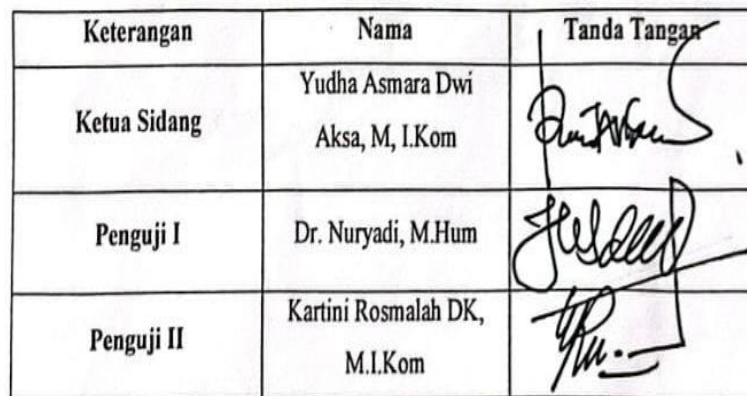 Keterangan Nama Tanda Tangan
Ketua Sidang
Yudha Asmara Dwi
Aksa, M, I.Kom
Penguji I Dr. Nuryadi, M.Hum
Penguji II
Kartini Rosmalah DK,
M.I.Kom